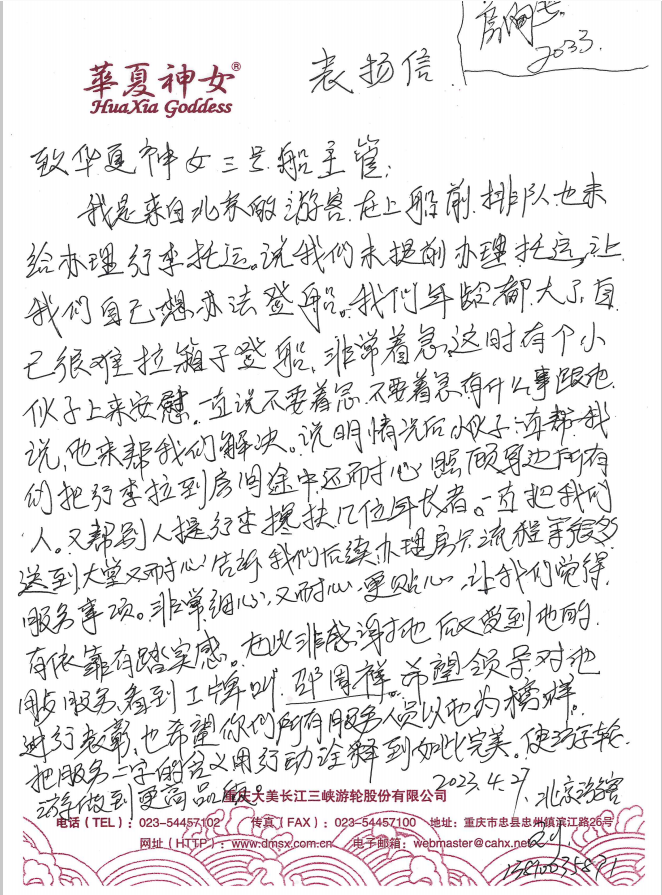 房间号
2033.
華夏神女®
HuaXia Goddess
表扬信
致华夏神女三号船主管:
我是来自北京的游客.在上船前.排队也未
给办理行李托运。说我们未提前办理托运,让
我们自己想办法登船。我们年龄都大了自
己很难拉箱子登船,非常着急,这时有个小
伙子上来安慰.一直说不要着急.不要着急.有什么事跟他
说,他来帮我们解决。说明情况后小伙子一直帮我
们把行李拉到房间途中还耐心照顾身边所有
人。又帮别人提行李搀扶几位年长者。一直把我们
送到大堂又耐心告诉我们后续办理房卡流程等很多
服务事项。非常细心,又耐心,更贴心,让我们觉得
有依靠有踏实感。为此非感谢他 后又受到他的
服务,看到工牌叫 邵周祥。希望领导对他
进行表彰,也希望你们所有服务人员以他为榜样。
把服务二字的含义用行动诠释到如此完美。使游轮
游做到更高品质。
2023.4.27 北京游客
重庆大美长江三峡游轮股份有限公司
电话(TEL):023-54457102 传真(FAX):023-54457100 地址:重庆市忠县忠州镇滨江路26号
网址(HTTP):www.dmsx.com.cn 电子邮箱:webmaster@cahx.net